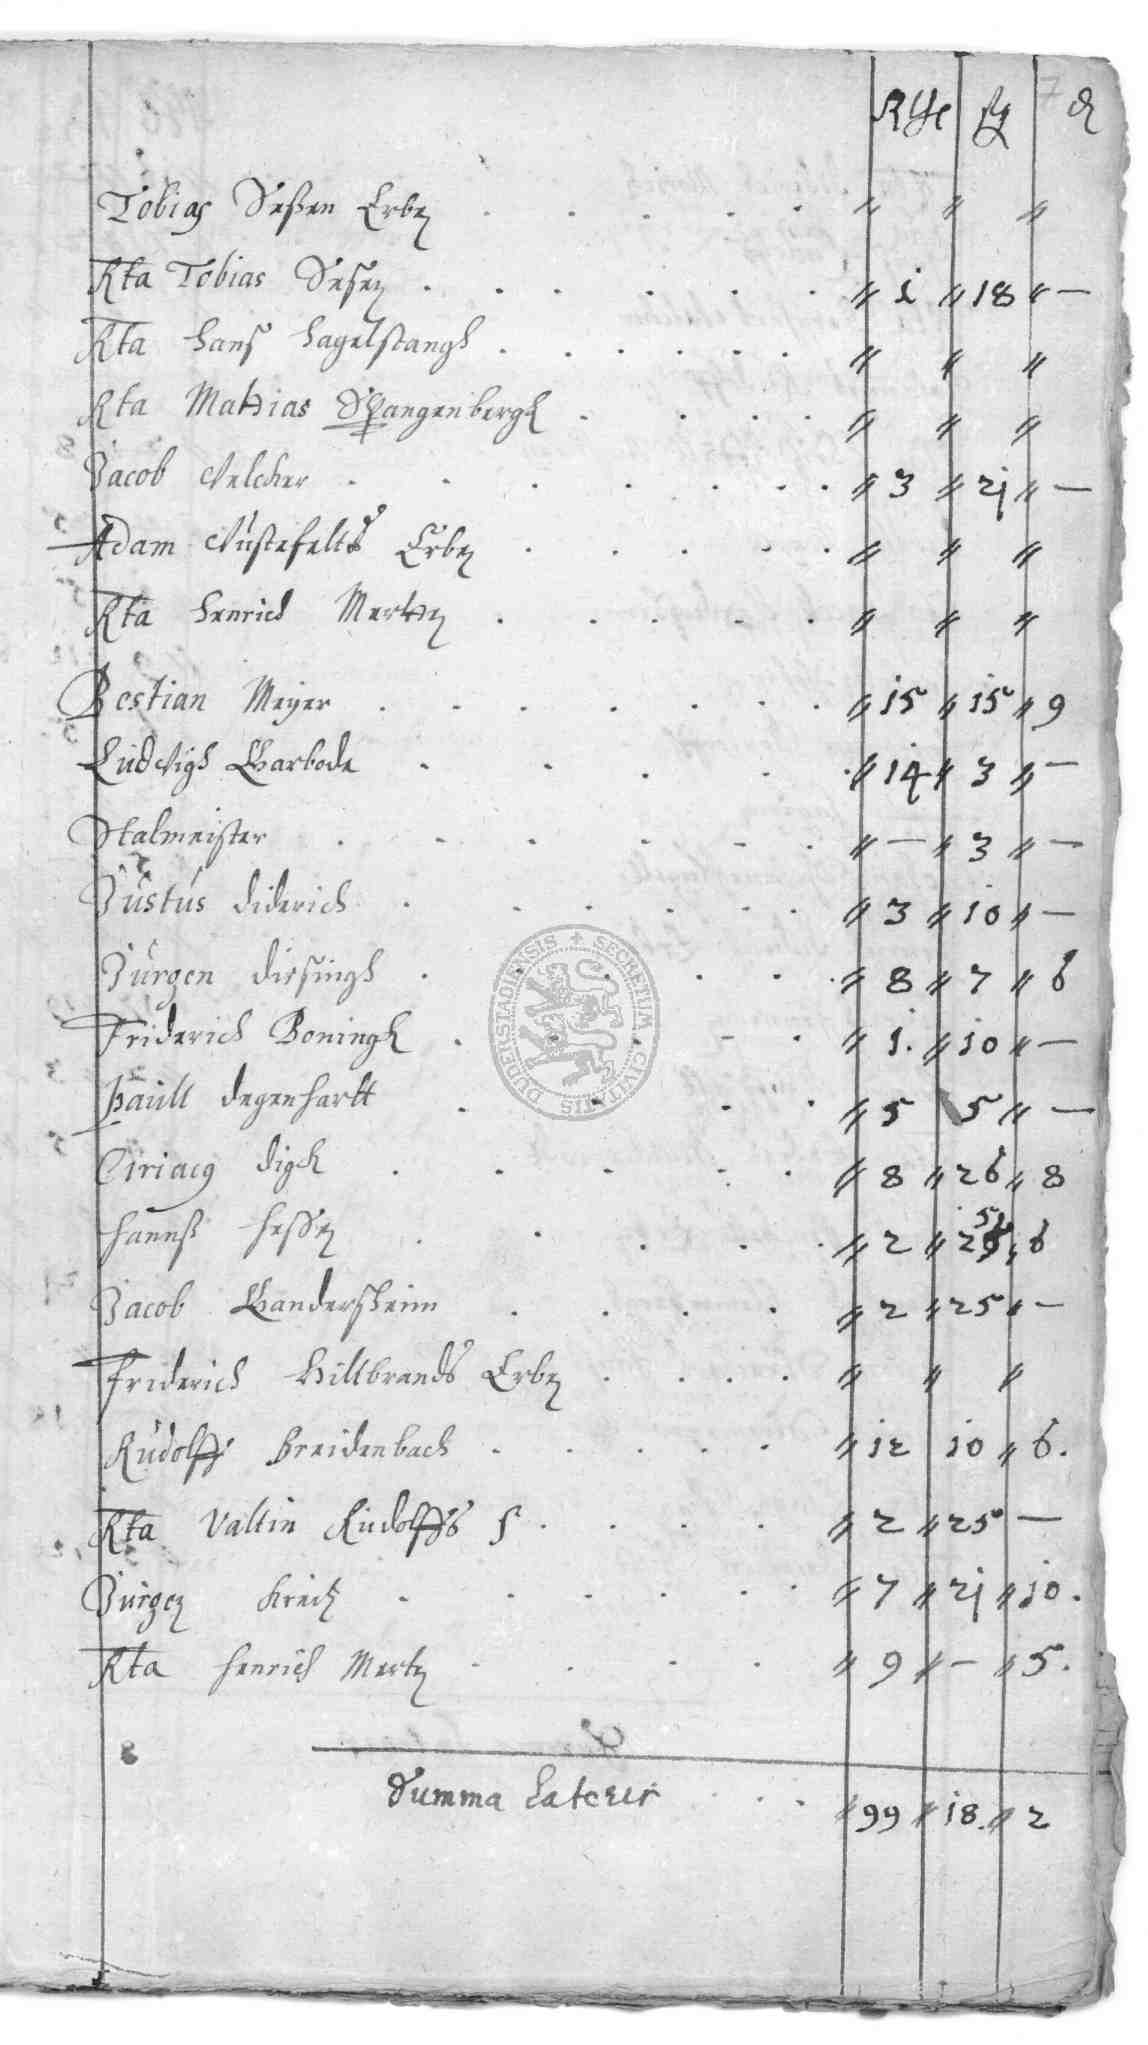 Rthl ß ₰
Tobias Seßen Erben . . . . . . " " "
Rta Tobias Sesen . . . . . . . " 1 " 18 " —
Rta Hans Hagelstangh . . . . . . " " "
Rta Mathias Spangenbergh . . . . " " "
Jacob Velcher . . . . . . . " 3 " 21 " —
Adam Wüstefelts Erben . . . . . " " "
Rta Henrich Merten . . . . . " " "
Bestian Meyer . . . . . . . " 15 " 15 " 9
Ludwigh Garbode . . . . . . " 14 " 3 " —
Stalmeister . . . . . . . " — " 3 " —
Justus Diderich . . . . . . " 3 " 10 " —
Jurgen Dirsingh . . . . . . " 8 " 7 " 6
Friderich Boningk . . . . . . " 1. " 10 " —
Paull Degenhartt . . . . . " 5 5 " —
Ciriacy Digk . . . . . " 8 " 26 " 8
Hannß Hessen . . . . . " 2 " " 6
Jacob Gandersheim . . . . " 2 " 25 " —
Friderich Hillbrands Erben . . . . " " "
Rudolff Breidenbach . . . . . " 12 10 " 6.
Rta Valtin Rudolffs S . . . . " 2 " 25 —
Jurgen Kreck . . . . . " 7 " 21 " 10.
Rta Henrich Merten . . . . " 9 " — " 5.
Summa Lateris . . . " 99 " 18. " 2
DUDERSTADIENSIS + SECRETUM CIVITATIS